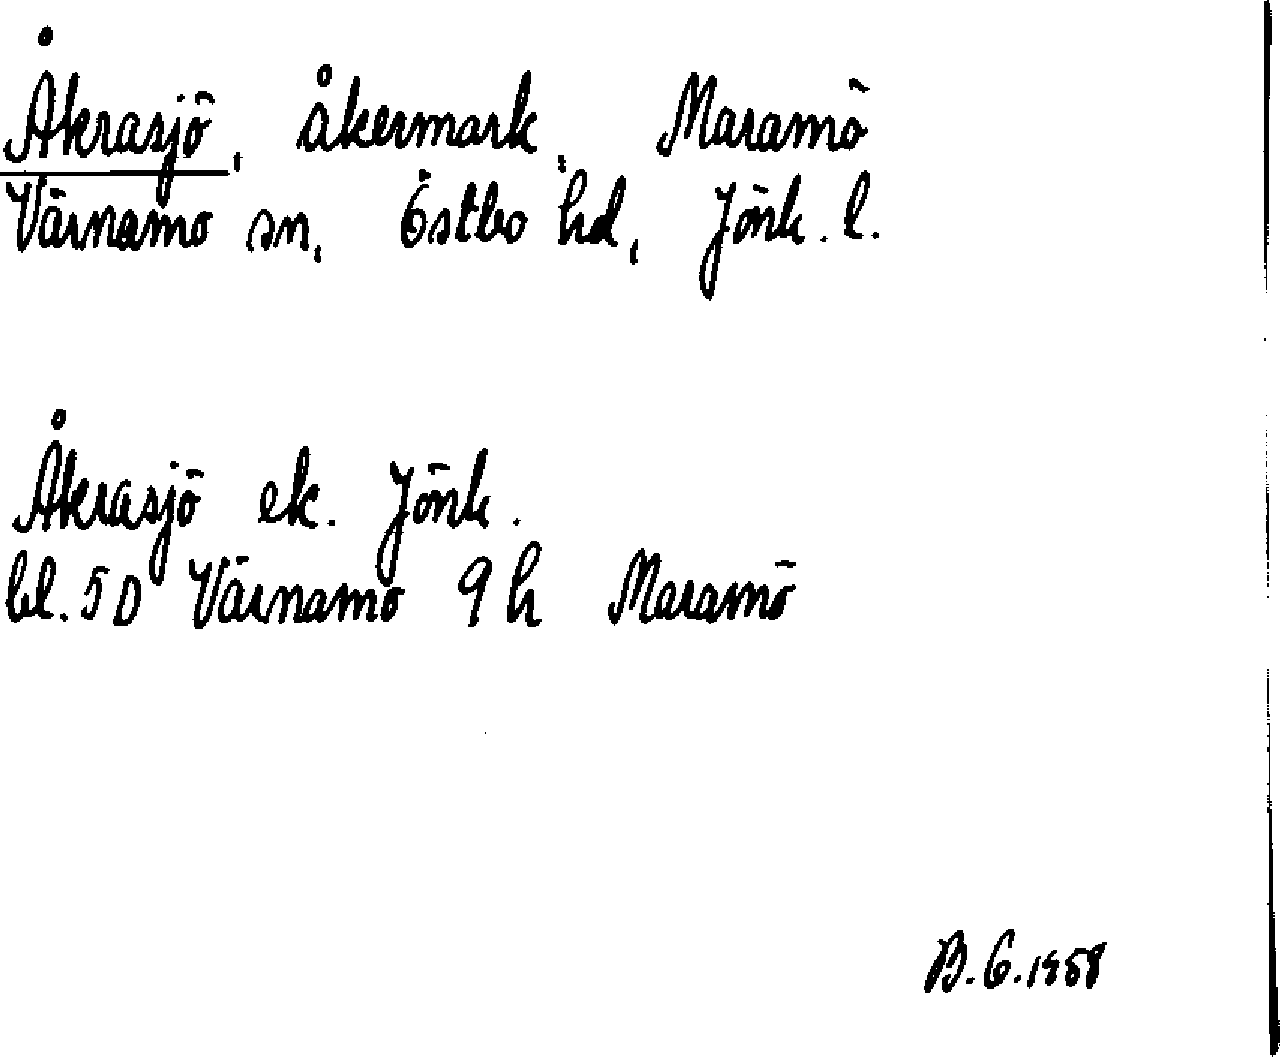 Åkrasjö, åkermark, Maramö
Värnamo sn, Östbo hd, Jönk. l.
Åkrasjö ek. Jönk.
bl. 5D Värnamo 9h Maramö
B.G. 1958